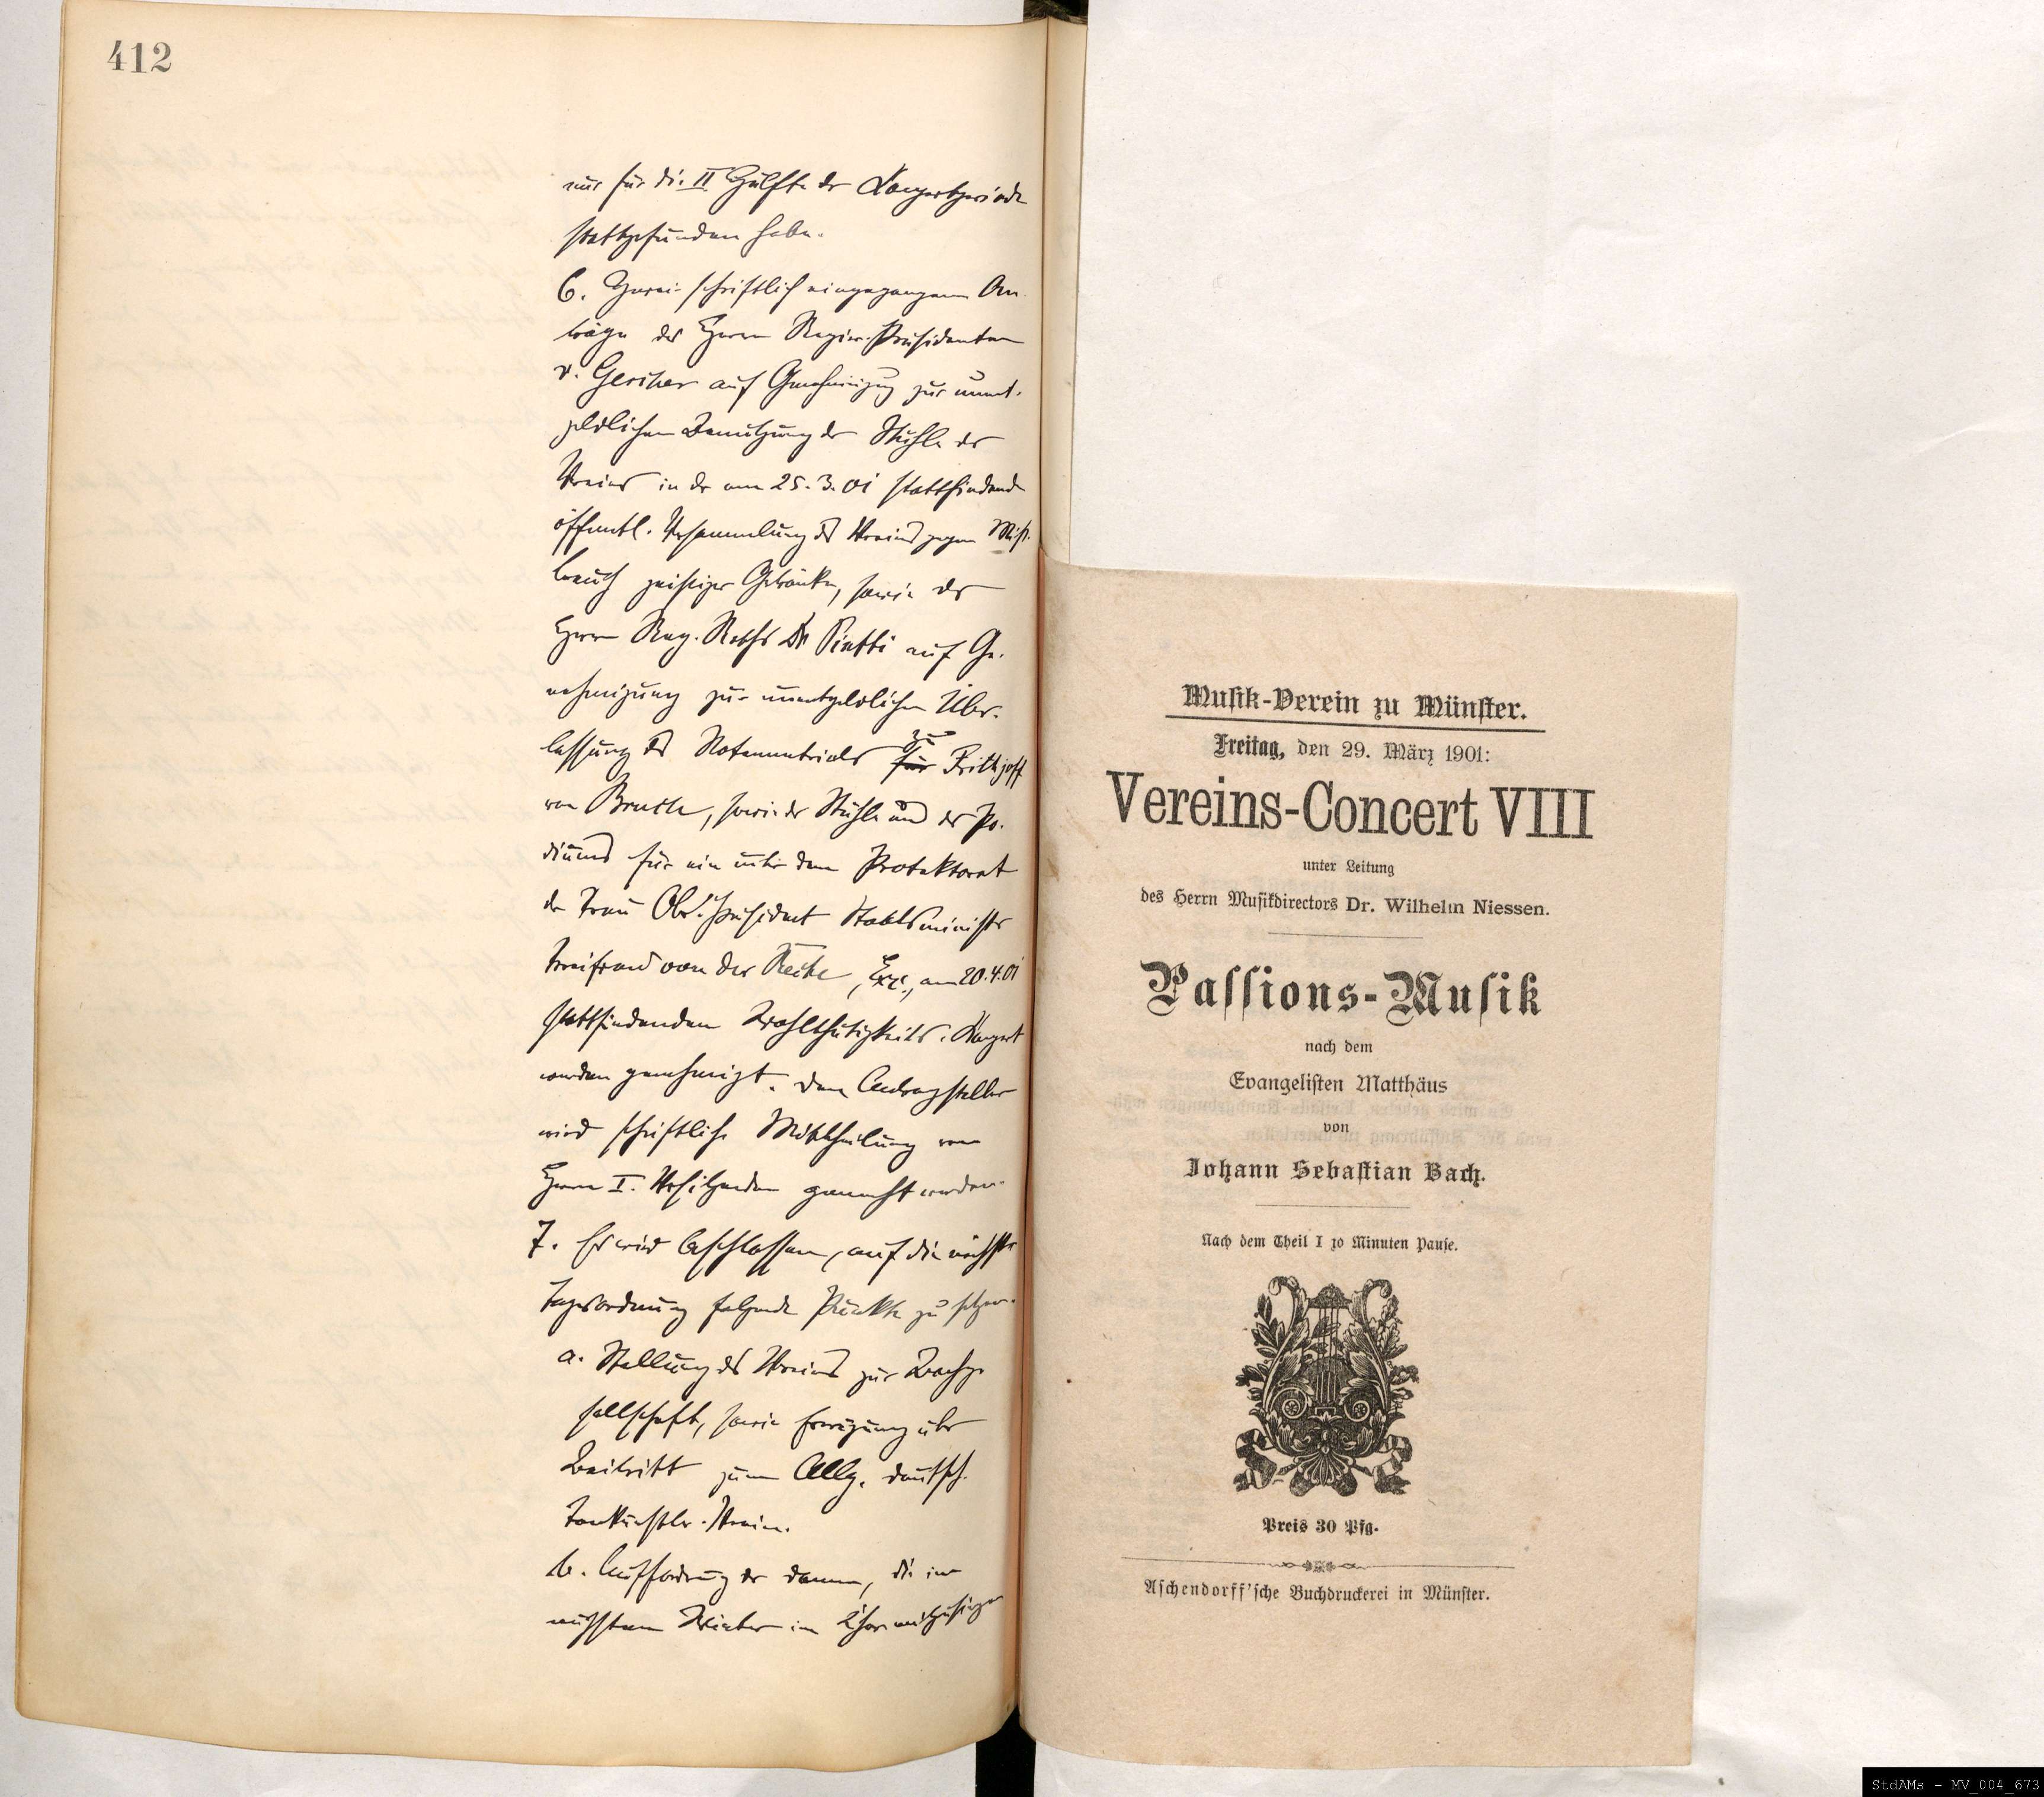 412
nur für die II Hälfte der Konzertperiode
stattgefunden habe.
6. Zwei schriftlich eingegangene An-
träge des Herrn Regier. Präsidenten
v. Gescher auf Genehmigung zur unent-
geldlichen Benutzung der Stühle des
Vereins in der am 25.3.01 stattfindend
öffentl. Versammlung des Vereins gegen Miß-
brauch geistiger Getränke, sowie des
Herrn Reg. Raths Dr auf Ge-
nehmigung zur unentgeldlichen Über-
lassung des Notenmaterials für zu Frithjoff
von Bruch, sowie der Stühle und des Po-
diums für ein unter dem Protektorat
der Frau Ob. Präsident Staatsminister
Freifrau von der Recke, Exc., am 20.4.01
stattfindenden Wohlthätigkeits-Konzert
werden genehmigt. Dem Antragsteller
wird schriftliche Mittheilung vom
Herrn I. Vorsitzenden gemacht werden.
7. Es wird beschlossen, auf die nächste
Tagesordnung folgende Punkte zu setzen.
a. Stellung des Vereins zur Bachge-
sellschaft, sowie Erwägung über
Beitritt zum Allg. deutsch.
Tonkünstler-Verein.
b. Aufforderung der Damen, die im
nächsten Winter im Chor mitzusingen
Musik-Verein zu Münster.
Freitag, den 29. März 1901:
Vereins-Concert VIII
unter Leitung
des Herrn Musikdirectors Dr. Wilhelm Niessen.
Passions-Musik
nach dem
Evangelisten Matthäus
von
Johann Sebastian Bach.
Nach dem Theil I 10 Minuten Pause.
Preis 30 Pfg.
Aschendorff'sche Buchdruckerei in Münster.
StdAMs - MV_004_673